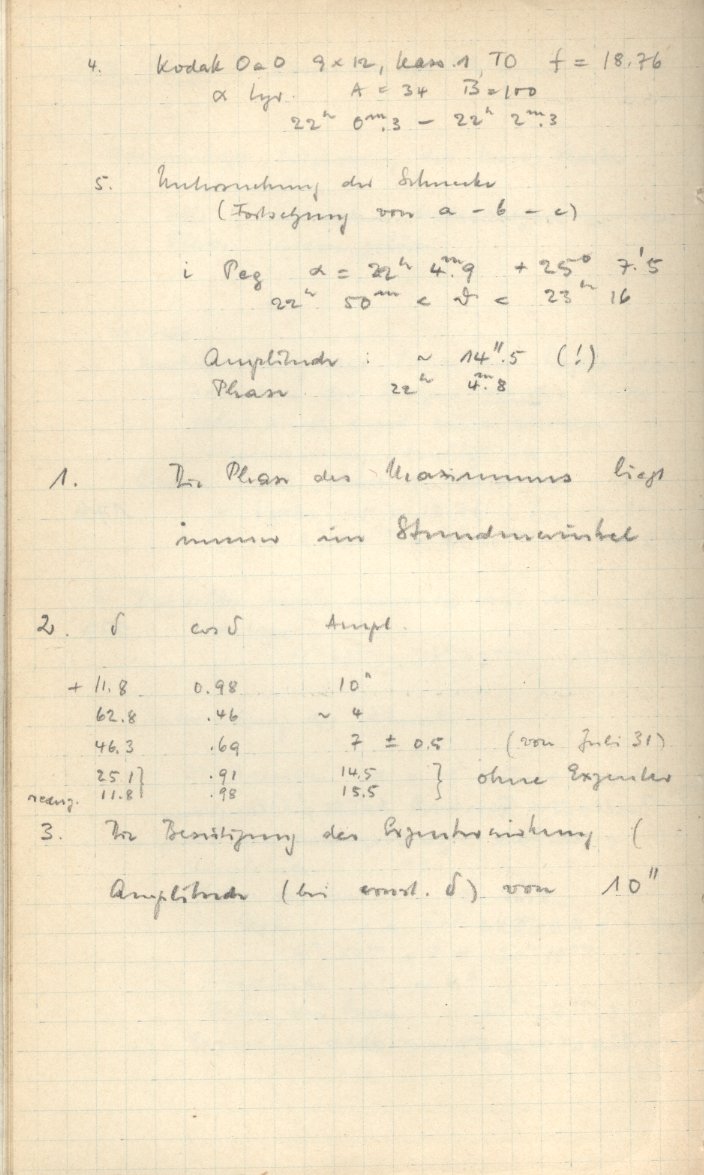 4. Kodak OaO 9 x 12, Kass. 1, TO f = 18.76
α Lyr. A = 34 B = 100
22ʰ 0ᵐ.3 – 22ʰ 2ᵐ.3
5. Untersuchung der Schnecke
(Fortsetzung von a – b – c)
i Peg α = 22ʰ 4ᵐ.9 + 25° 7'.5
22ʰ 50ᵐ < ϑ < 23ʰ 16
Amplitude : ~ 14".5 (!)
Phase 22ʰ 4ᵐ.8
1. Die Phase des Maximums liegt
immer im Stundenwinkel
2. δ cos δ Ampl.
+ 11.8 0.98 10"
62.8 .46 ~ 4
46.3 .69 7 ± 0.5 (von Juli 31)
25.1 } .91 14.5 } ohne Exzenter
11.8 .98 15.5
3. Die Beseitigung der Exzenterwirkung (
Amplitude (bei const. δ) von 10"